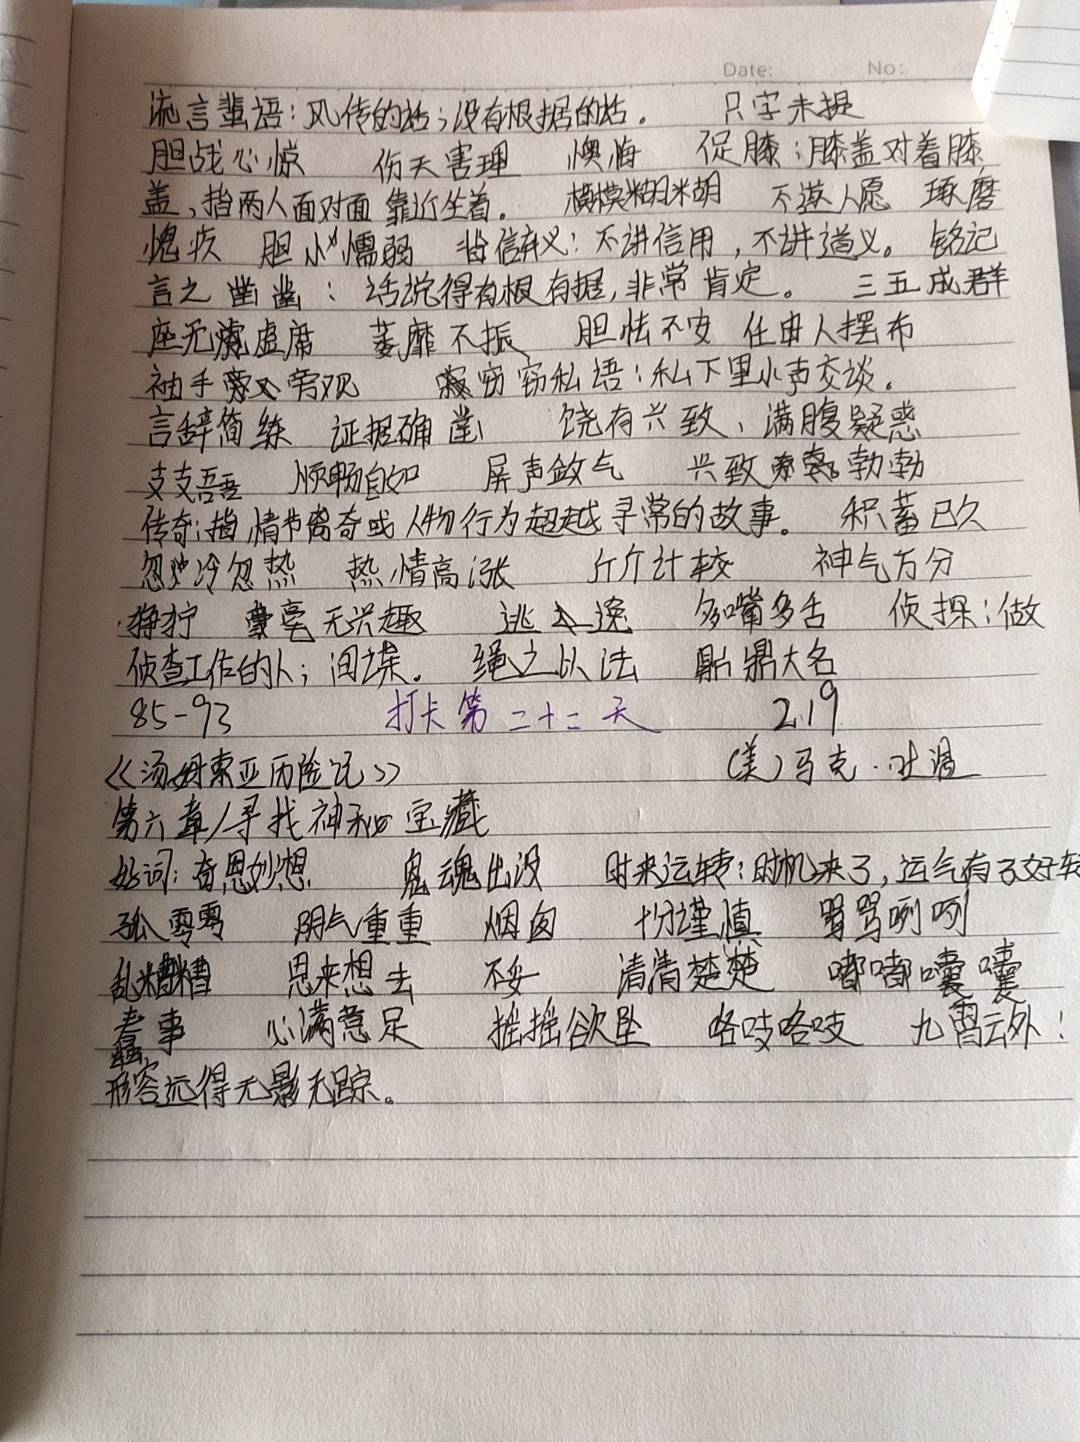 Date: No:
流言蜚语：风传的话；没有根据的话。 只字未提
胆战心惊 伤天害理 懊悔 促膝：膝盖对着膝
盖，指两人面对面靠近坐着。 模模糊糊 不遂人愿 琢磨
愧疚 胆小懦弱 背信弃义：不讲信用，不讲道义。 铭记
言之凿凿：话说得有根有据，非常肯定。 三五成群
座无虚席 萎靡不振 胆怯不安 任由人摆布
袖手旁观 窃窃私语：私下里小声交谈。
言辞简练 证据确凿 饶有兴致、满腹疑惑
支支吾吾 顺畅自如 屏声敛气 兴致勃勃
传奇：指情节离奇或人物行为超越寻常的故事。 积蓄已久
忽冷忽热 热情高涨 斤斤计较 神气万分
狰狞 毫无兴趣 逃逸 多嘴多舌 侦探：做
侦查工作的人；间谍。 绳之以法 鼎鼎大名
85-93 打卡第二十二天 2.19
《汤姆索亚历险记》 （美）马克·吐温
第六章/寻找神秘宝藏
好词：奇思妙想 鬼魂出没 时来运转：时机来了，运气有了好转
孤零零 阴气重重 烟囱 十分谨慎 骂骂咧咧
乱糟糟 思来想去 不妥 清清楚楚 嘟嘟囔囔
蠢事 心满意足 摇摇欲坠 咯吱咯吱 九霄云外：
形容远得无影无踪。